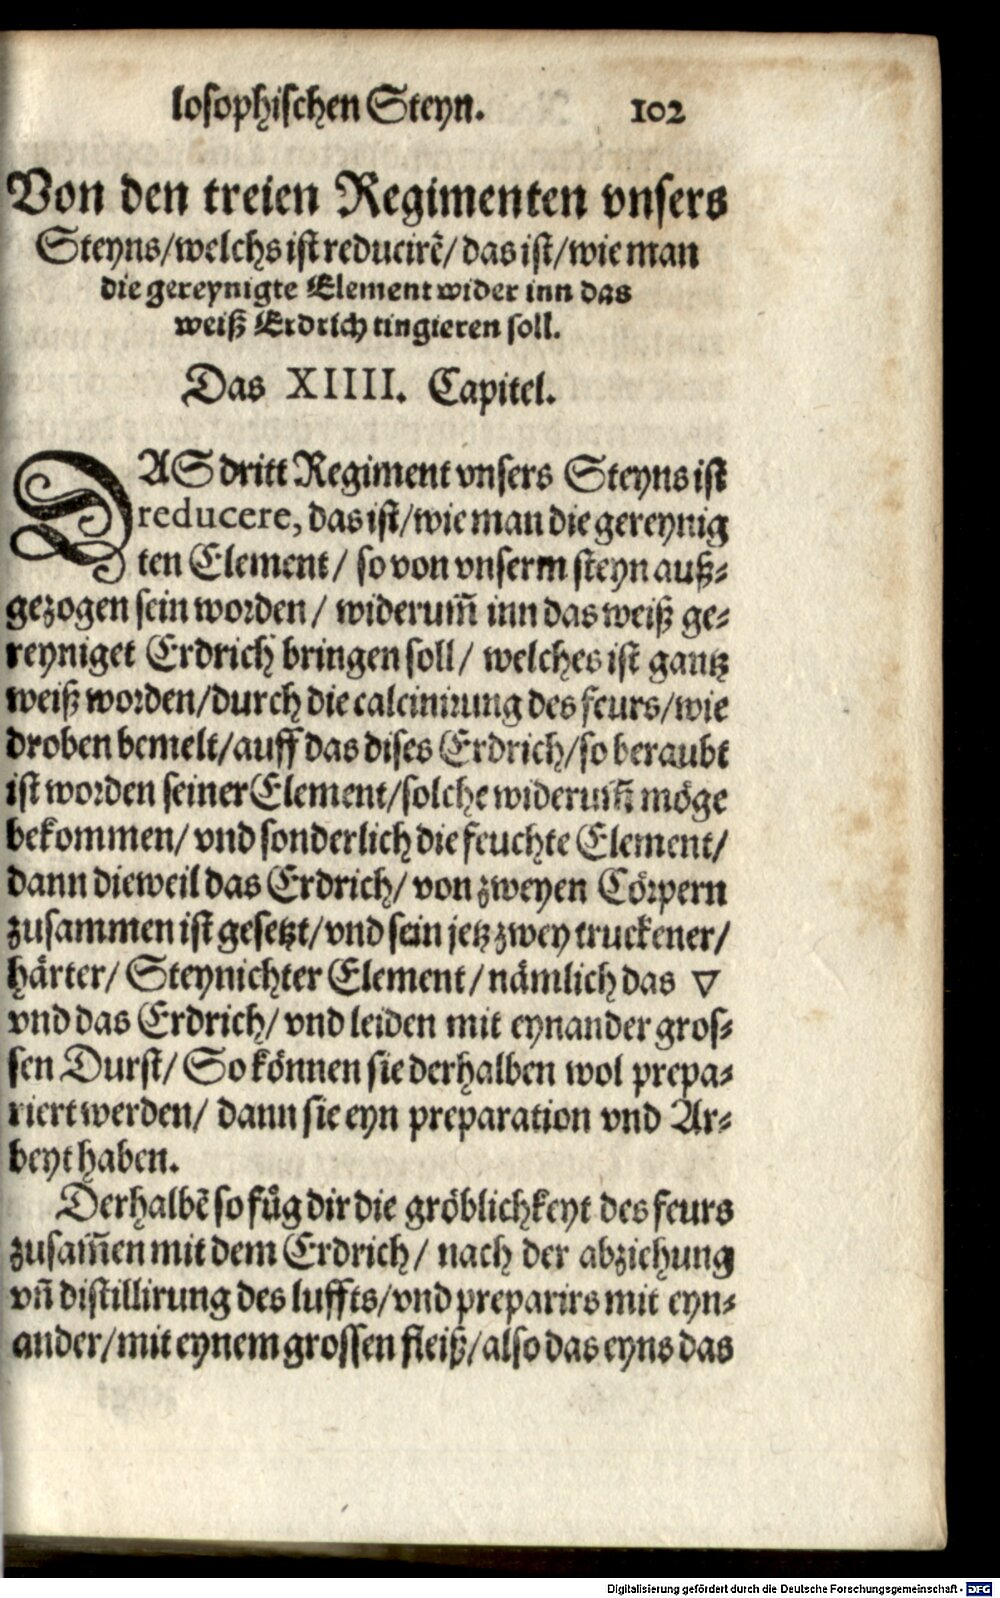 losophischen Steyn. 102
Von den treien Regimenten vnsers
Steyns/welchs ist reducirẽ/ das ist/wie man
die gereynigte Element wider inn das
weiß Erdrich tingieren soll.
Das XIIII. Capitel.
DAS dritt Regiment vnsers Steyns ist
reducere, das ist/wie man die gereynig
ten Element/ so von vnserm steyn auß⸗
gezogen sein worden/ widerum̃ inn das weiß ge⸗
reyniget Erdrich bringen soll/ welches ist gantz
weiß worden/durch die calcinirung des feurs/wie
droben bemelt/auff das dises Erdrich/so beraubt
ist worden seiner Element/solche widerum̃ möge
bekommen/ vnd sonderlich die feuchte Element/
dann dieweil das Erdrich/ von zweyen Cörpern
zusammen ist gesetzt/vnd sein jetz zwey truckener/
härter/ Steynichter Element/nämlich das ▽
vnd das Erdrich/ vnd leiden mit eynander gros⸗
sen Durst/ So können sie derhalben wol prepa⸗
riert werden/ dann sie eyn preparation vnd Ar⸗
beyt haben.
Derhalbẽ so fůg dir die gröblichkeyt des feurs
zusam̃en mit dem Erdrich/ nach der abziehung
vñ distillirung des luffts/vnd preparirs mit eyn⸗
ander/mit eynem grossen fleiß/also das eyns das
Digitalisierung gefördert durch die Deutsche Forschungsgemeinschaft - DFG